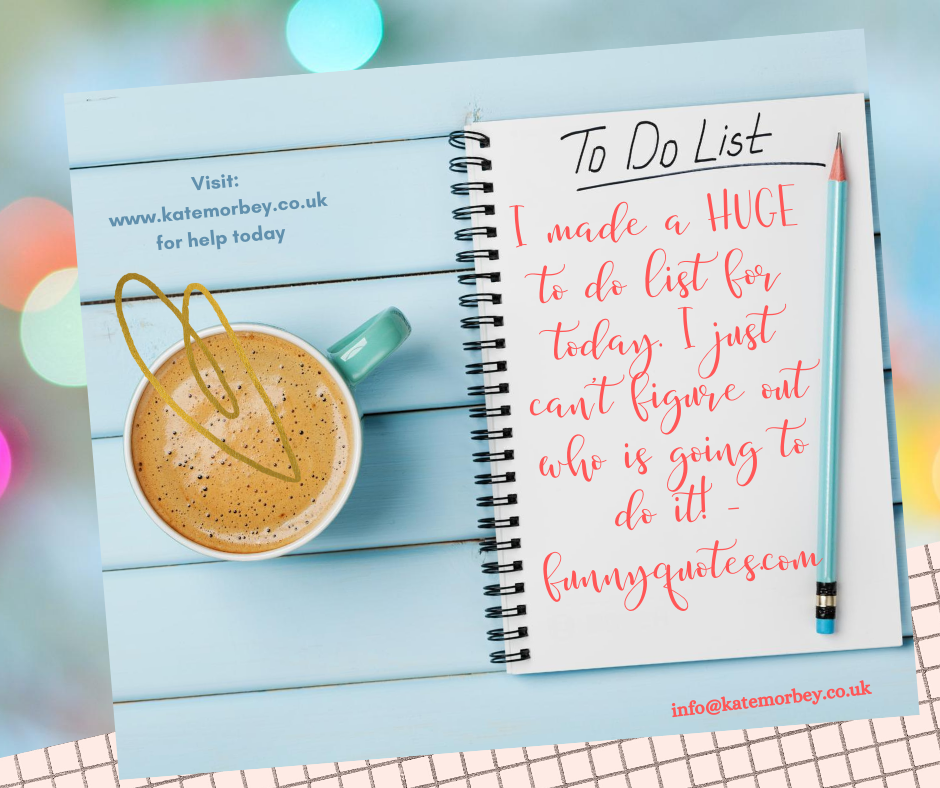 Visit:
www.katemorbey.co.uk
for help today
To Do List
I made a HUGE
to do list for
today. I just
can't figure out
who is going to
do it! -
funnyquotes.com
info@katemorbey.co.uk